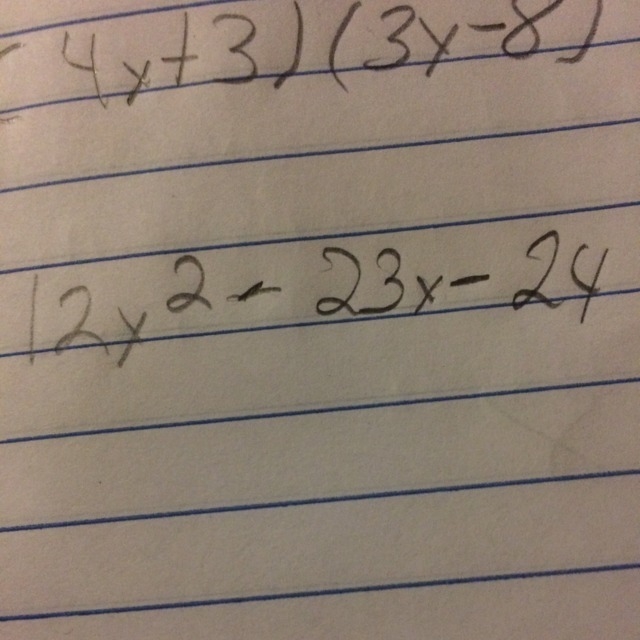 (4x+3)(3x-8)
12x² - 23x - 24